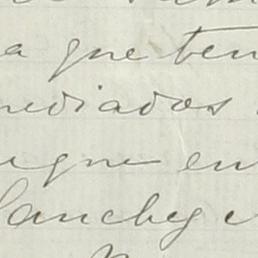 a que ten
mediados
que en
Sanchez e